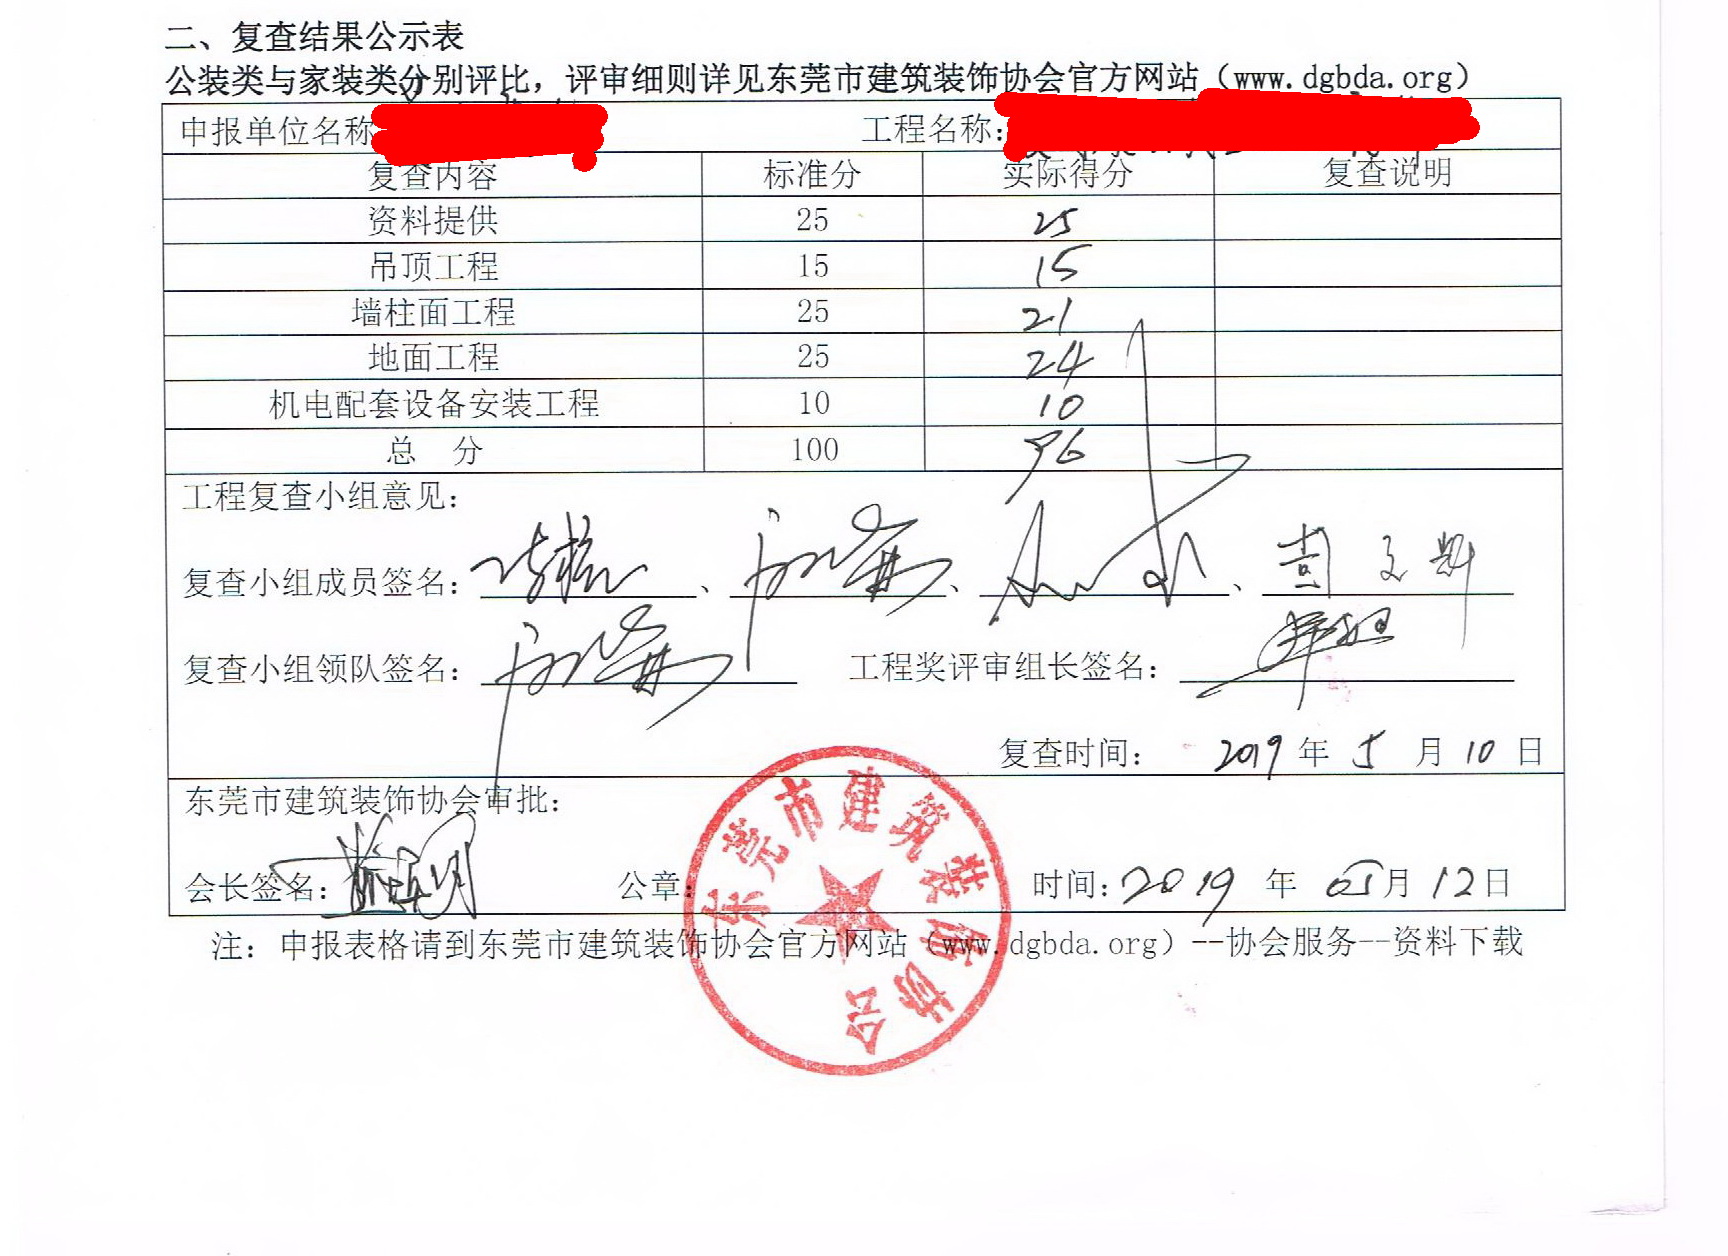 二、复查结果公示表
公装类与家装类分别评比，评审细则详见东莞市建筑装饰协会官方网站（www.dgbda.org）
申报单位名称 工程名称：
复查内容 标准分 实际得分 复查说明
资料提供 25 25
吊顶工程 15 15
墙柱面工程 25 21
地面工程 25 24
机电配套设备安装工程 10 10
总 分 100 96
工程复查小组意见：
复查小组成员签名： 、 、 、
复查小组领队签名： 工程奖评审组长签名：
复查时间： 2019 年 5 月 10 日
东莞市建筑装饰协会审批：
会长签名： 公章： 时间：2019 年 05月 12日
东莞市建筑装饰协会
注：申报表格请到东莞市建筑装饰协会官方网站（www.dgbda.org）--协会服务--资料下载